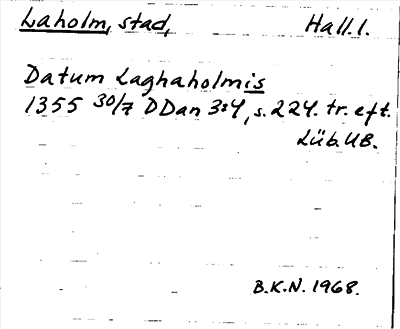 Laholm, stad, Hall. l.
Datum Laghaholmis
1355 30/7 DDan 3:4, s. 224. tr. eft.
Lüb. UB.
B.K.N. 1968.